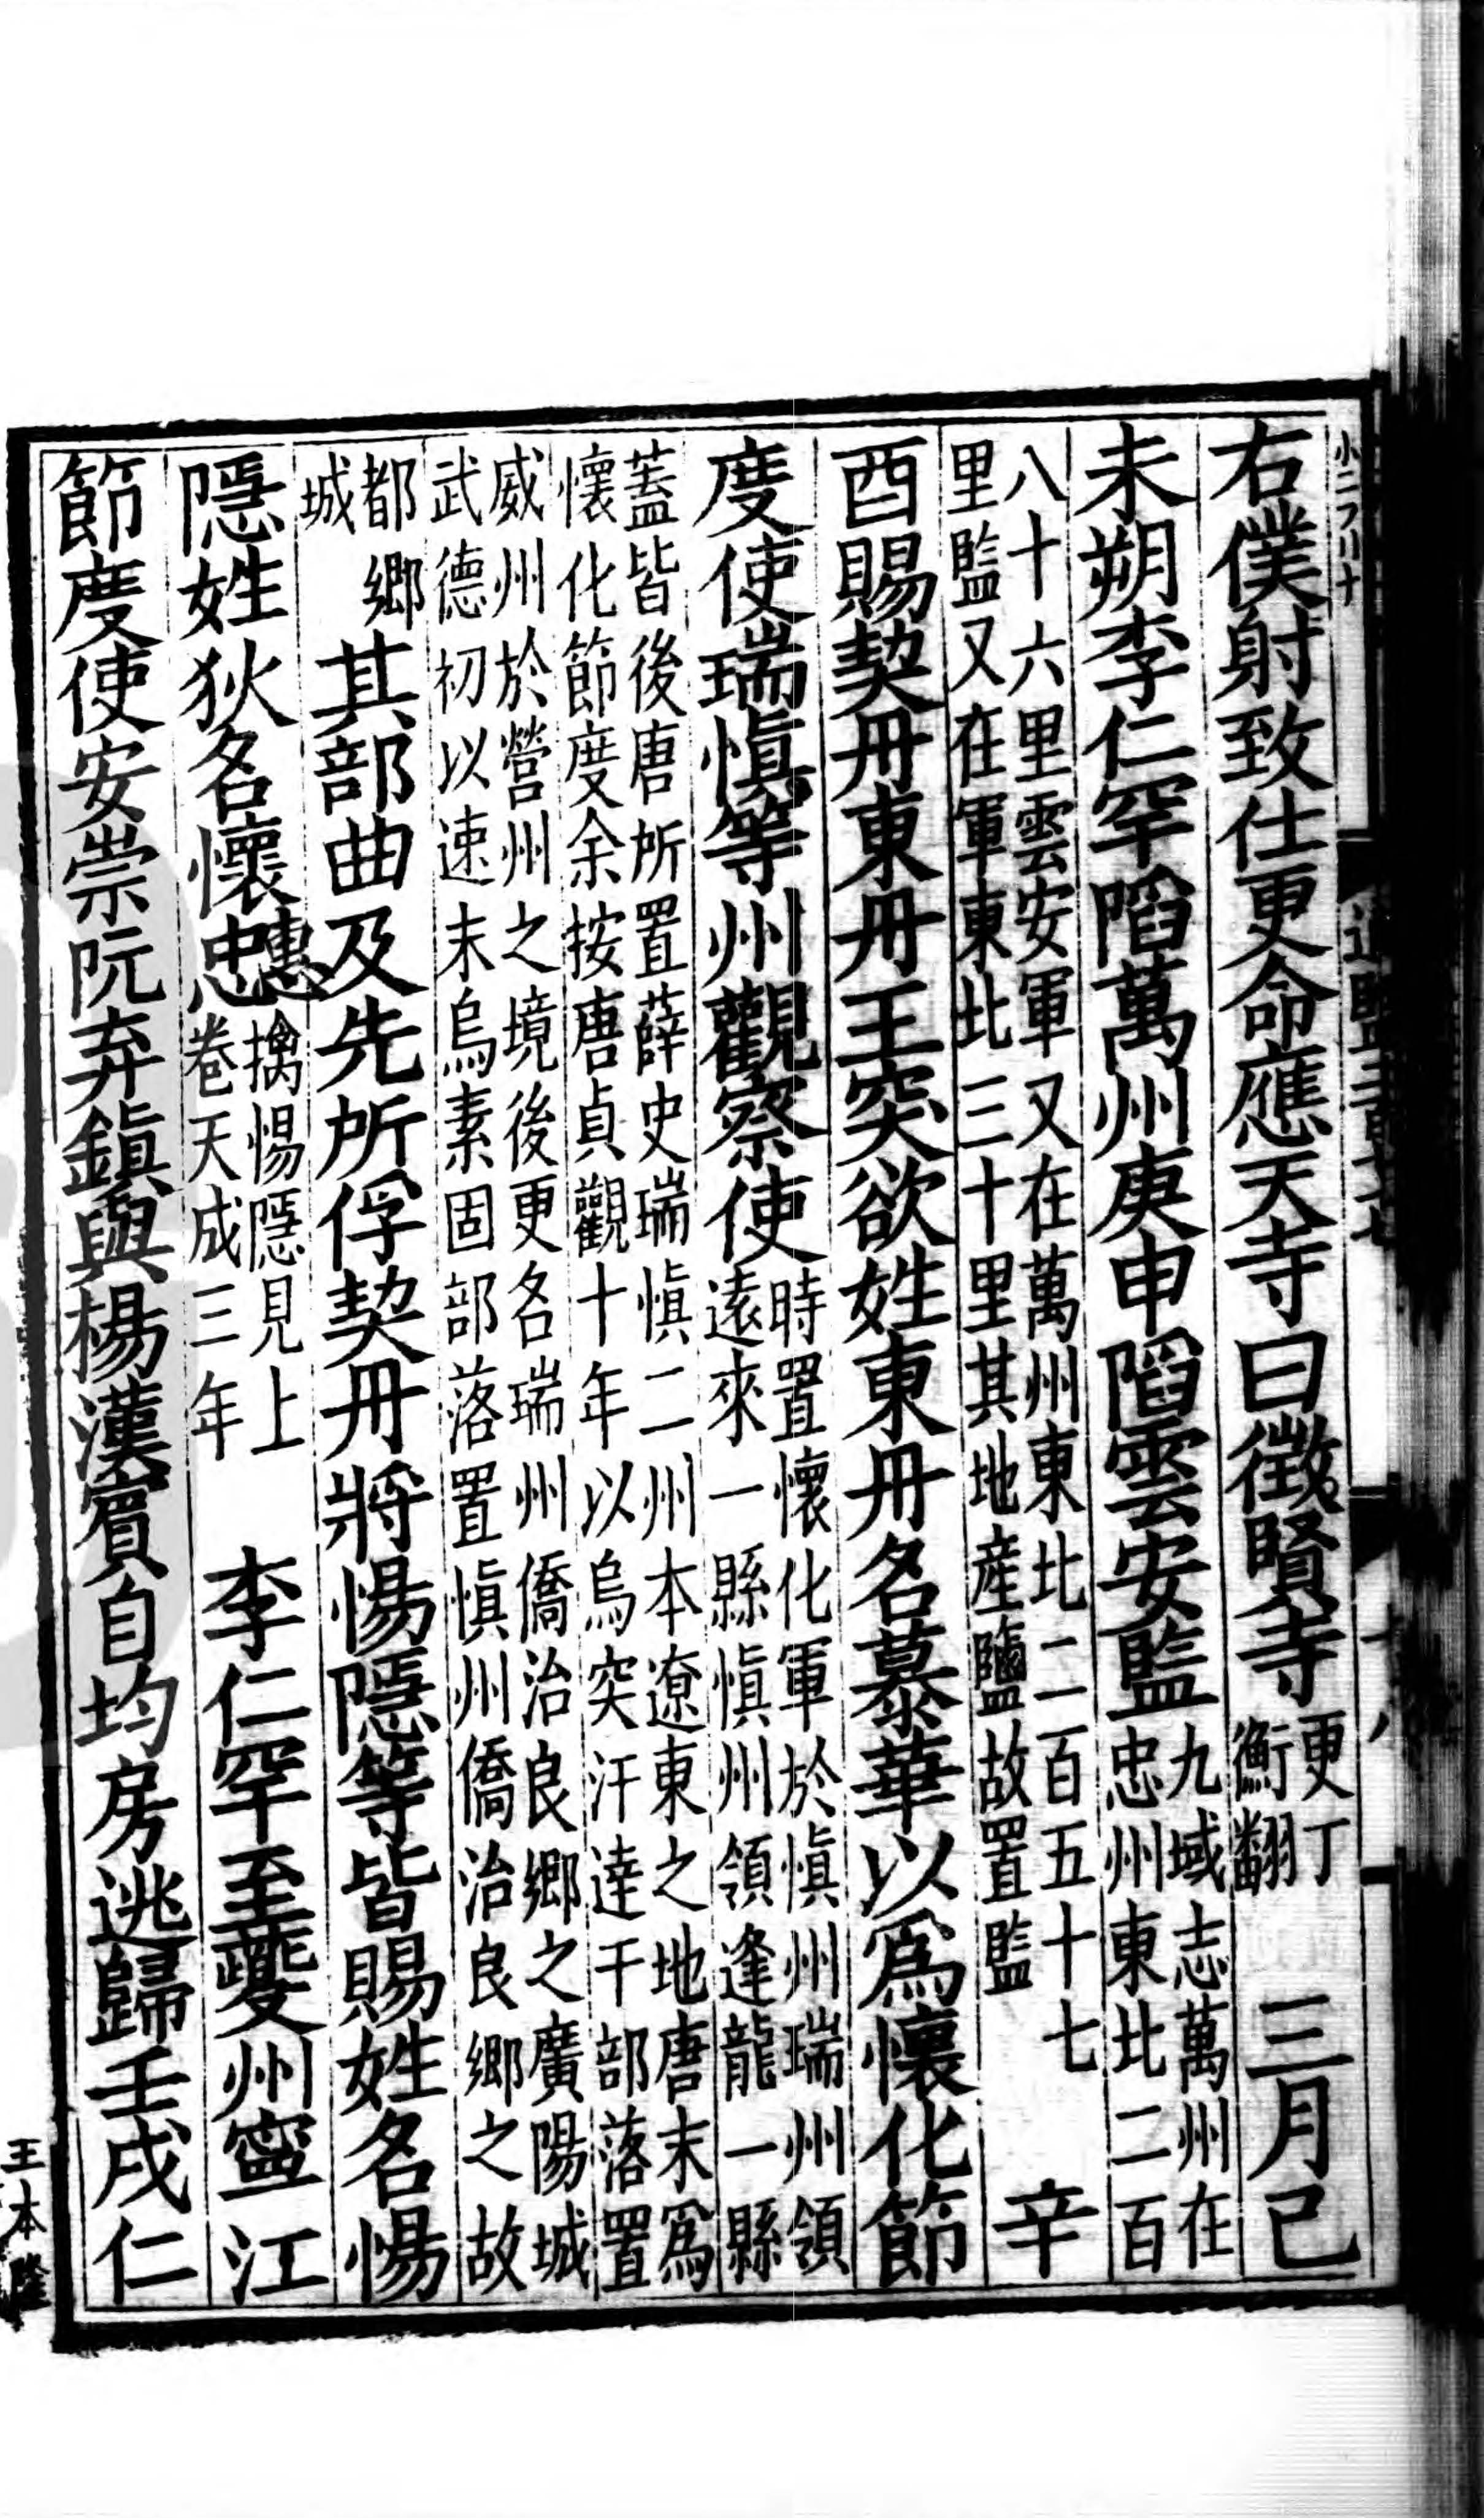 右僕射致仕更命應天寺曰徵賢寺更丁衡翻三月己
未朔李仁罕䧟萬州庚申䧟雲安監九域志萬州在忠州東北二百
八十六里雲安軍又在萬州東北二百五十七里監又在軍東北三十里其地産鹽故置監辛
酉賜契丹東丹王突欲姓東丹名慕華以爲懷化節
度使瑞愼等州觀察使時置懷化軍於愼州瑞州領遠來一縣愼州領逢龍一縣
蓋皆後唐所置薛史瑞愼二州本遼東之地唐末爲懷化節度余按唐貞觀十年以烏突汗達干部落置
威州於營州之境後更名瑞州僑治良鄉之廣陽城武德初以速末烏素固部落置愼州僑治良鄉之故
都鄉城其部曲及先所俘契丹將惕隱等皆賜姓名惕
隱姓狄名懷惠忠擒惕隱見上卷天成三年李仁罕至夔州寧江
節度使安崇阮弃鎮與楊漢賓自均房逃歸壬戌仁
王本